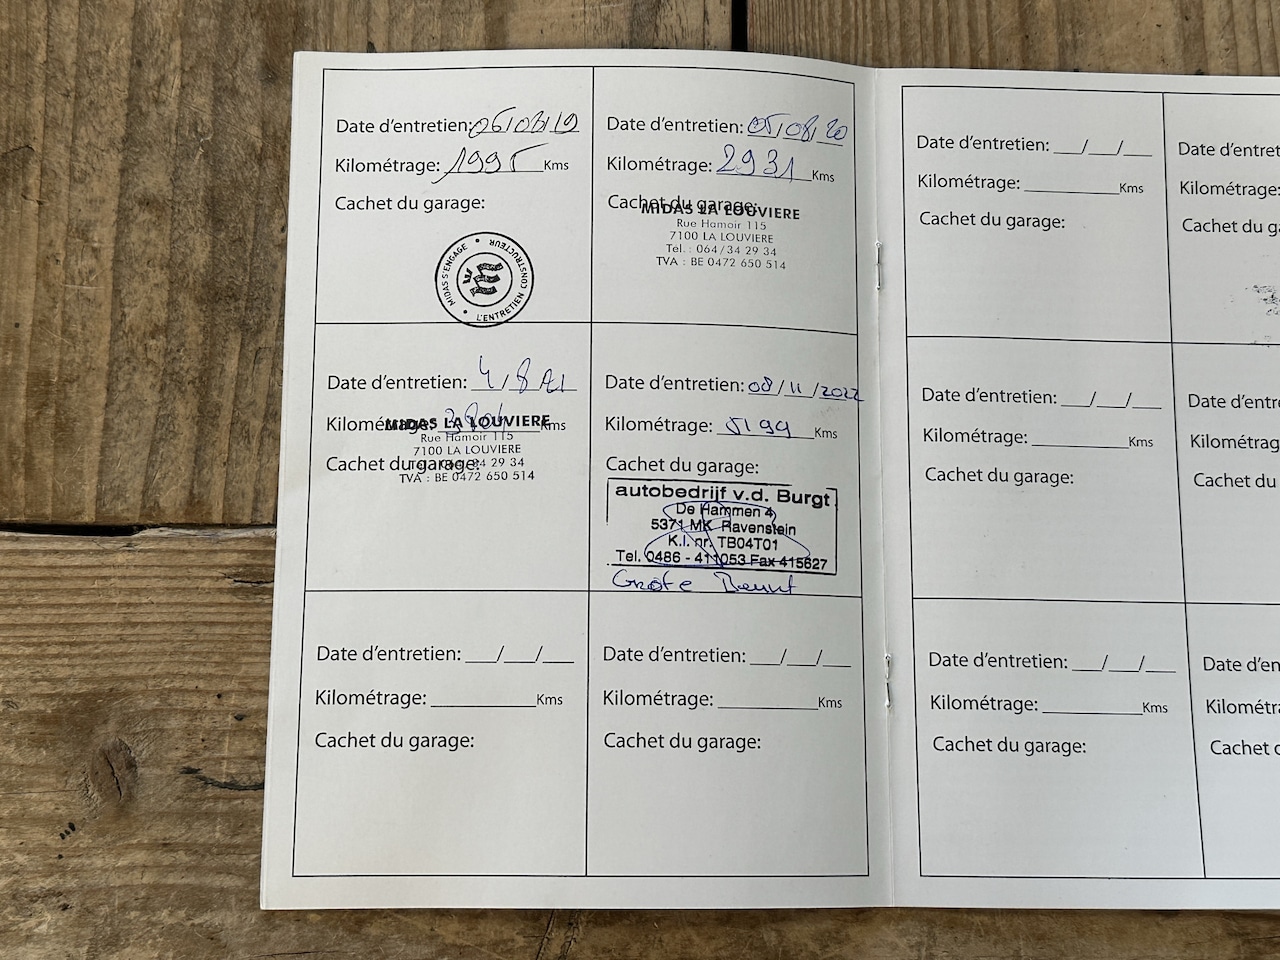 Date d'entretien: 06/08/19
Kilométrage: 1995 Kms
Cachet du garage:
MIDAS S'ENGAGE • L'ENTRETIEN CONSTRUCTEUR •
Date d'entretien: 05/08/20
Kilométrage: 2931 Kms
Cachet du garage:
MIDAS LA LOUVIERE
Rue Hamoir 115
7100 LA LOUVIERE
Tel. : 064/34 29 34
TVA : BE 0472 650 514
Date d'entretien: 4/8/21
Kilométrage: Kms
MIDAS LA LOUVIERE
Rue Hamoir 115
7100 LA LOUVIERE
Cachet du garage:
Tel. : 064/34 29 34
TVA : BE 0472 650 514
Date d'entretien: 08/11/2022
Kilométrage: 5199 Kms
Cachet du garage:
autobedrijf v.d. Burgt
De Hammen 4
5371 MK Ravenstein
K.I. nr. TB04T01
Tel. 0486 - 411053 Fax 415627
Grote Beurt
Date d'entretien: __/__/__
Kilométrage: ________ Kms
Cachet du garage:
Date d'entretien: __/__/__
Kilométrage: ________ Kms
Cachet du garage:
Date d'entretien: __/__/__
Kilométrage: ________ Kms
Cachet du garage:
Date d'entret
Kilométrage:
Cachet du ga
Date d'entretien: __/__/__
Kilométrage: ________ Kms
Cachet du garage:
Date d'entre
Kilométrag
Cachet du
Date d'entretien: __/__/__
Kilométrage: ________ Kms
Cachet du garage:
Date d'en
Kilométr
Cachet d